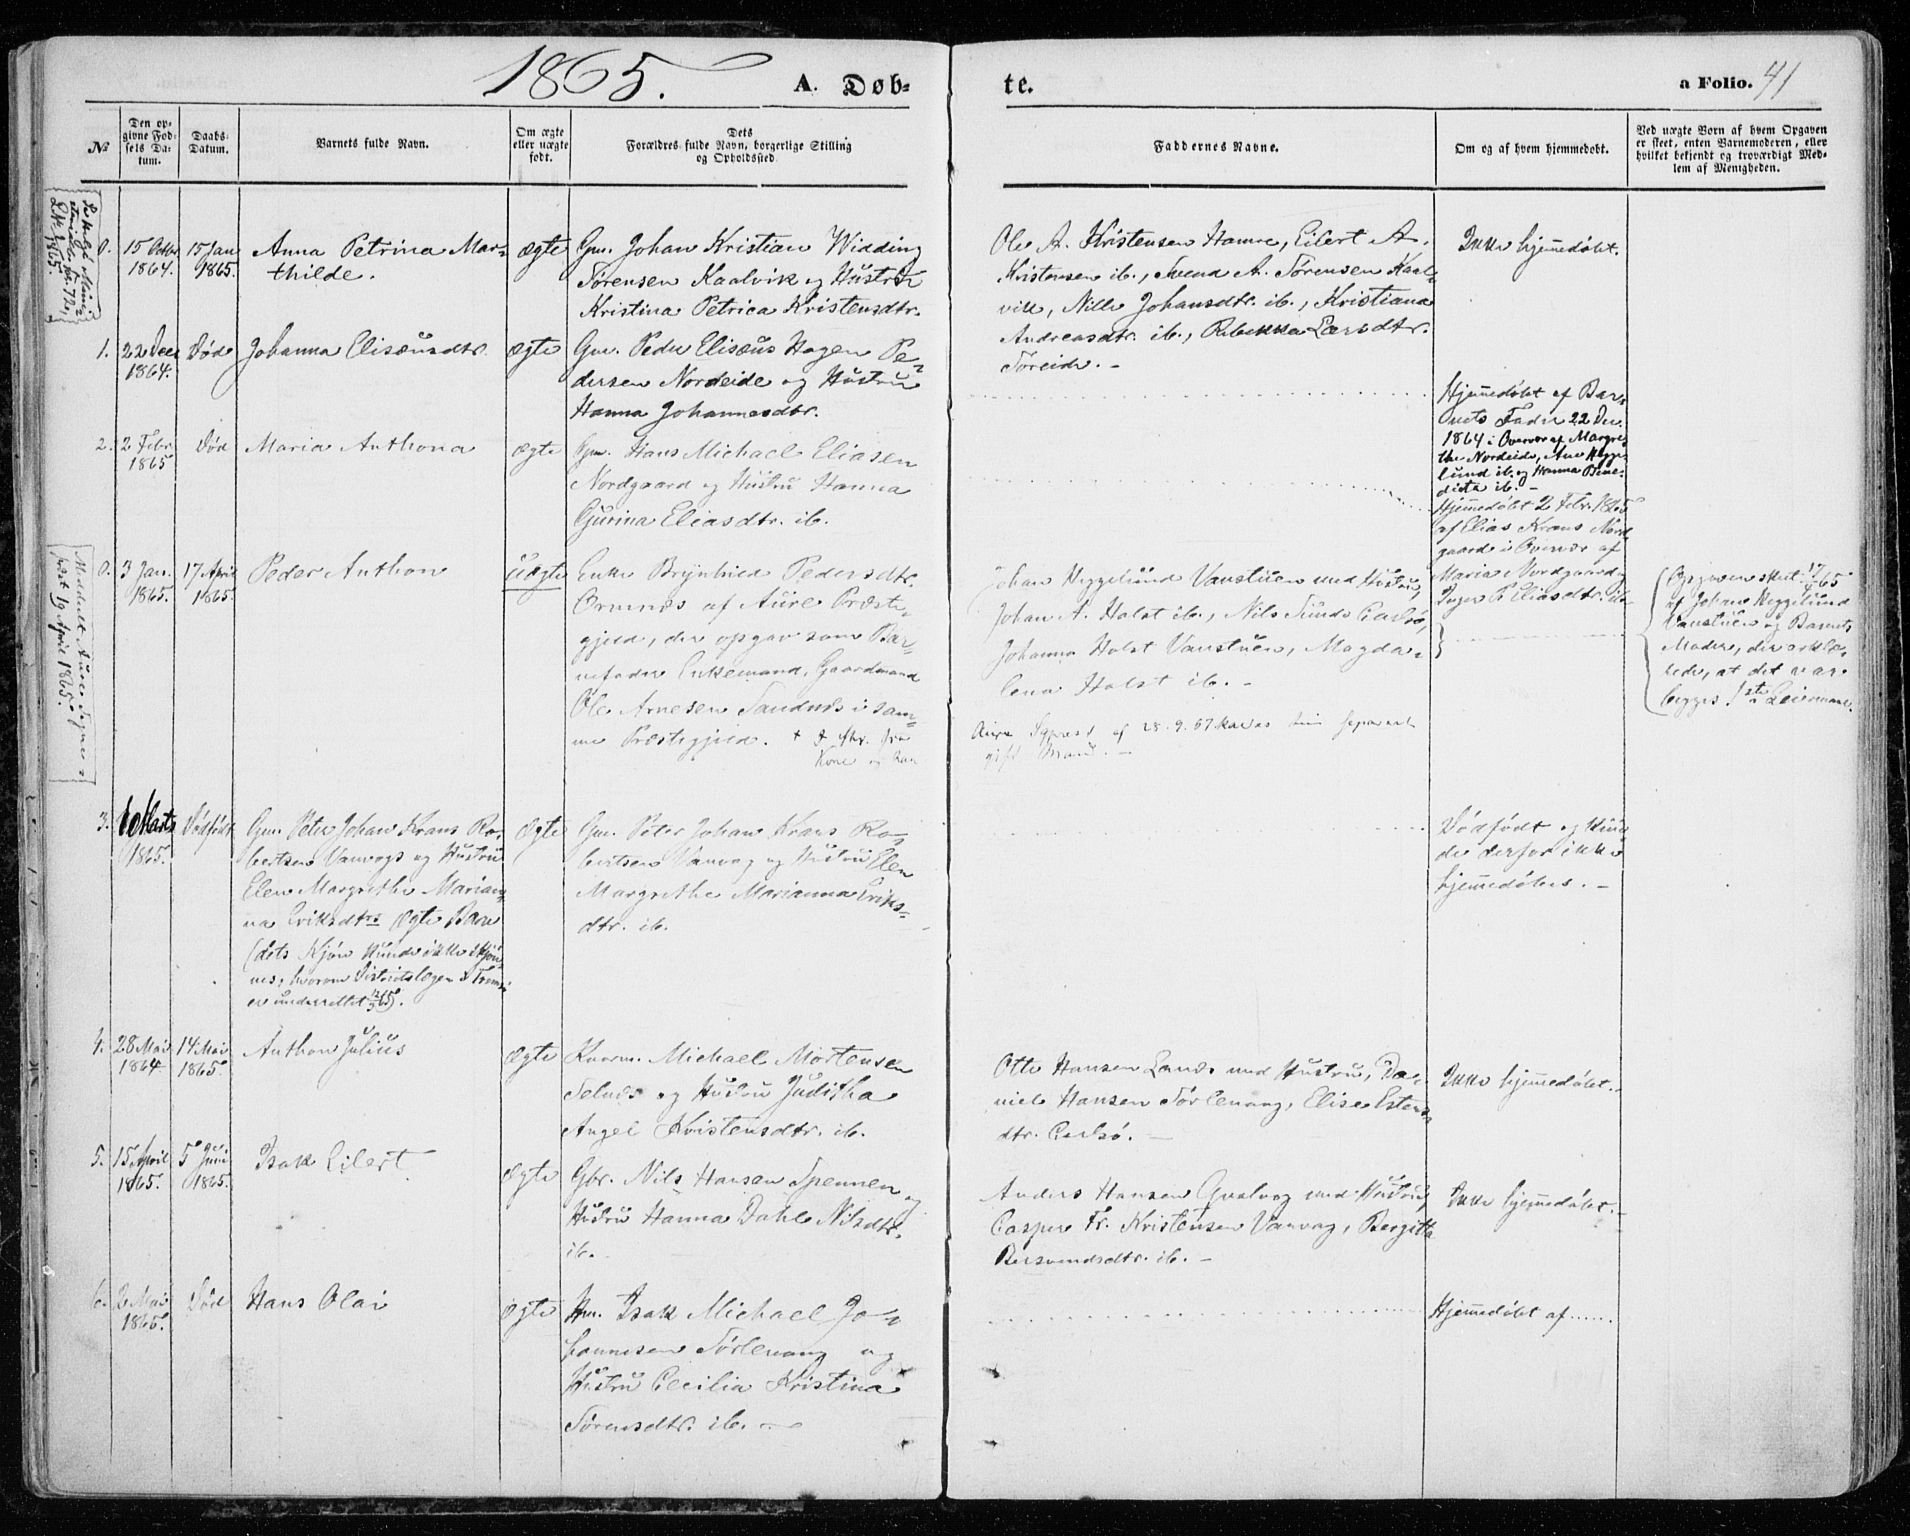 1865. A. Døb-
te. a Folio. 41
№
Den op-
givne Fød-
sels Da-
tum.
Daabs-
Datum.
Barnets fulde Navn.
Om ægte
eller uægte
født.
Dets
Forældres fulde Navn, borgerlige Stilling
og Opholdssted.
Faddernes Navne.
Om og af hvem hjemmedøbt.
Ved uægte Børn af hvem Opgaven
er skeet, enten Barnemoderen, eller
hvilket bekjendt og troværdigt Med-
lem af Menigheden.
0.
15 Octbr
1864.
15 Jan
1865.
Anna Petrina Mar-
thilde.
ægte
Gm. Johan Kristian Widding
Sørensen Kaalvik og Hustru
Kristina Petrica Kristensdtr.
Ole A. Kristensen Hamre, Eilert A.
Kristensen ib., Svend A. Sørensen Kaal-
vik, Nille Johansdtr. ib., Kristiana
Andreasdtr. ib., Rebekka Larsdtr.
Toreide. -
Ikke hjemmedøbt.
1.
22 Dec
1864.
Død
Johanna Elisæusdtr.
ægte
Gm. Peder Elisæus Hagen Pe-
dersen Nordeide og Hustru
Hanna Johannesdtr.
Hjemmedøbt af Bar-
nets Fader 22 Dec.
1864 i Overvær af Margre-
the Nordeide, Ane Hegge-
lund ib. og Hanna Bene-
dicta ib. -
2.
2 Febr
1865
Død
Maria Anthona
ægte
Gm. Hans Michael Eliasen
Nordgaard og Hustru Hanna
Gjurina Eliasdtr. ib.
Hjemmedøbt 2 Febr. 1865
af Elias Krans Nord-
gaard i Overvær af
Maria Nordgaard og
Inger P. Eliasdtr. ib.
0.
3 Jan.
1865.
17 April
1865.
Peder Anthon
uægte
Enke Brynhild Pedersdtr.
Ormnæs af Aure Præste-
gjeld, der opgav som Bar-
nefader Enkemand, Gaardmand
Ole Arnesen Sandnæs i sam-
me Præstegjeld.
Johan Heggelund Vanstuen med Hustru,
Johan A. Holst ib., Nils Sunds Carlsø,
Johanna Holst Vanstuen, Magda-
lena Holst ib. -
Opgaven skeet 17/4 65
af Johan Heggelund
Vanstuen og Barnets
Moder, der erklæ-
rede, at det var
begges 1ste Leiermaal.
Meddelt Aures Sogne-
præst 19 April 1865.
3.
Marts
1865.
Dødfødt
Gm. Peter Johan Krans Ro-
bertsen Vanvags og Hustru
Elen Margrethe Marian-
na Eriksdtrs ægte Barn
(dets Kjøn kunde ikke skjøn-
nes, hvorom Districtslægen i Tromsø
er underrettet).
ægte
Gm. Peter Johan Krans Ro-
bertsen Vanvag og Hustru Elen
Margrethe Marianna Eriks-
dtr. ib.
Dødfødt og kun-
de derfor ikke
hjemmedøbes. -
4.
28 Mai
1864
14 Mai
1865.
Anthon Julius
ægte
Kvœrn. Michael Mortensen
Selnæs og Hustru Juditha
Angel Kristensdtr. ib.
Otte Hansen Lanes med Hustru, Da-
niel Hansen Sørlenang, Elise Esters-
dtr. Carlsø. -
Ikke hjemmedøbt.
5.
15 April
1865.
5 Juni
1865.
Isak Eilert
ægte
Gbr. Nils Hansen Spennen og
Hustru Hanna Dahl Nilsdtr.
ib.
Anders Hansen Qvalvog med Hustru,
Casper Fr. Kristensen Vanvag, Bergitta
Bersvendsdtr. ib. -
Ikke hjemmedøbt.
6.
2 Mai
1865.
Død
Hans Olai
ægte
Hm. Isak Michael Jo-
hannesen Sørlenang og
Hustru Cecilia Kristina
Sørensdtr. ib. -
Hjemmedøbt af......